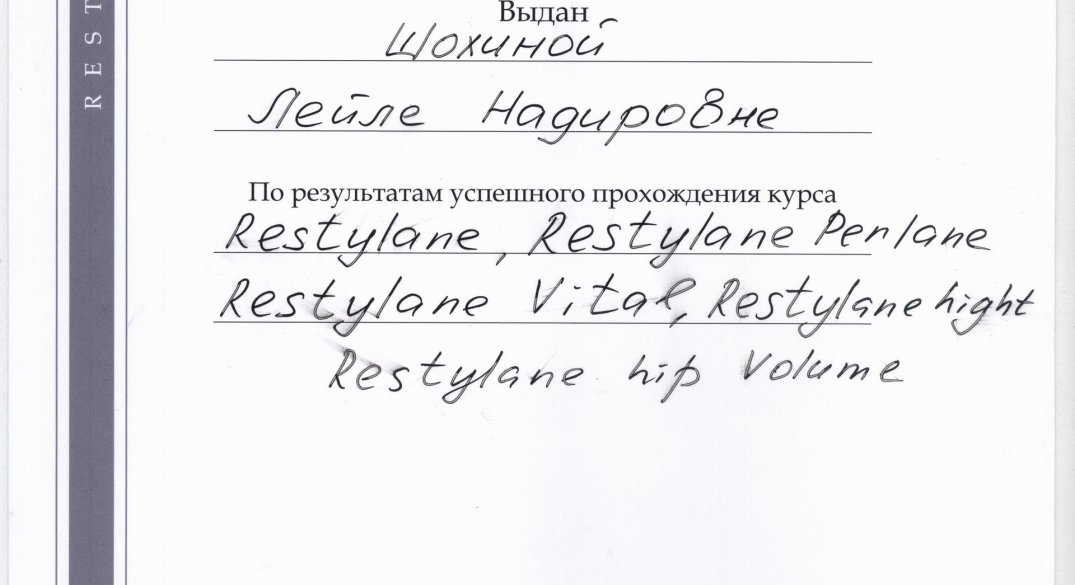 REST
Выдан
Шохиной
Лейле Надировне
По результатам успешного прохождения курса
Restylane, Restylane Perlane
Restylane Vital, Restylane hight
Restylane hip Volume